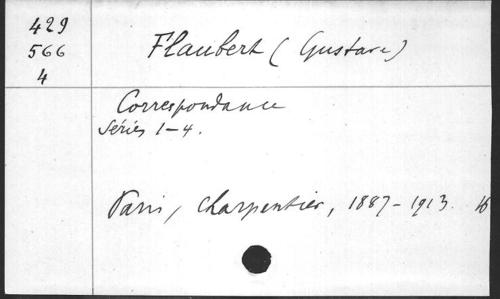 429
566
4
Flaubert (Gustave)
Correspondance
Séries 1-4.
Paris, Charpentier, 1887-1913.